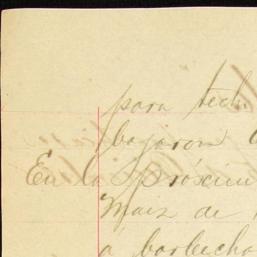 para tech
bajaron
En la próxim
Maiz de
a barbecho